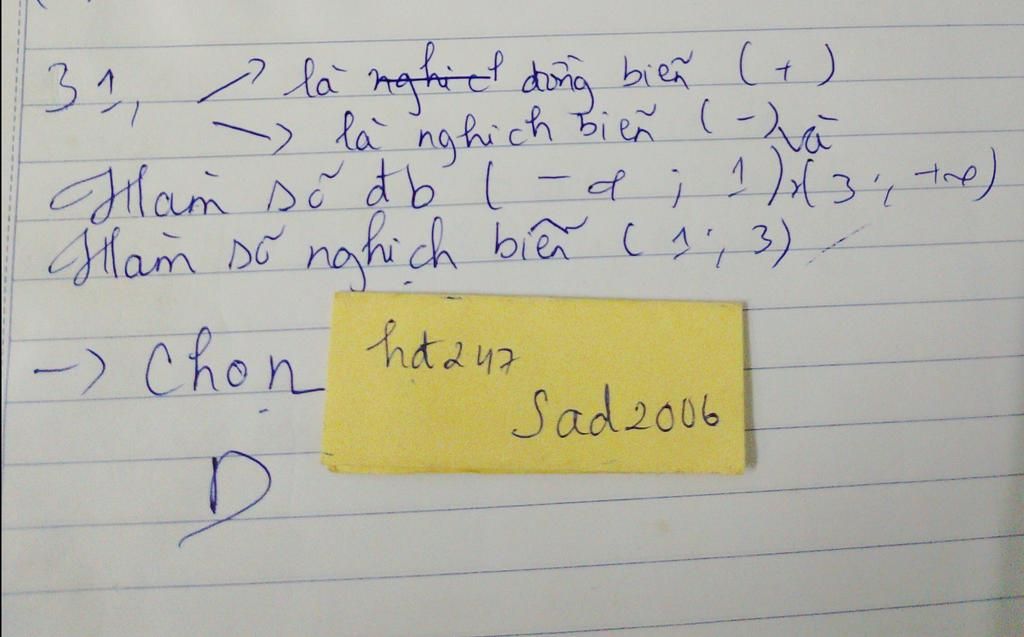 31, ↗ là nghịc dồng biến (+)
↘ là nghich biến (-)
Hàm số đb (-∞; 1) và (3; +∞)
Hàm số nghịch biến (1; 3)
→ Chọn
D
hđ247
Sad2006